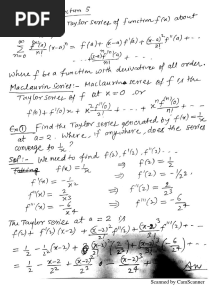 PDF
Section 5
Taylor series of function f(x) about
∑ n=0 ∞ fⁿ(a)/n! (x-a)ⁿ = f(a) + (x-a) f'(a) + (x-a)²/2! f''(a) + ...
where f be a function with derivatives of all order.
Maclaurin Series:- Maclaurin series of f is the
Taylor series of f at x = 0, or
f(0) + f'(0) x + x² f''(0)/2! + ... + xⁿ fⁿ(0)/n! + ...
Ex① Find the Taylor series generated by f(x) = 1/x
at a = 2. Where, if anywhere, does the series
converge to 1/x?
Solⁿ:- We need to find f(2), f'(2), ...
f(x) = 1/x ⇒ f(2) = 1/2
f'(x) = -1/x² ⇒ f'(2) = -1/2²
f''(x) = 2/x³ ⇒ f''(2) = 2/2³
f'''(x) = -6/x⁴ ⇒ f'''(2) = -6/2⁴
The Taylor series at a = 2 is
f(2) + f'(2) (x-2) + (x-2)²/2! f''(2) + (x-2)³/3! f'''(2) + ...
Scanned by CamScanner